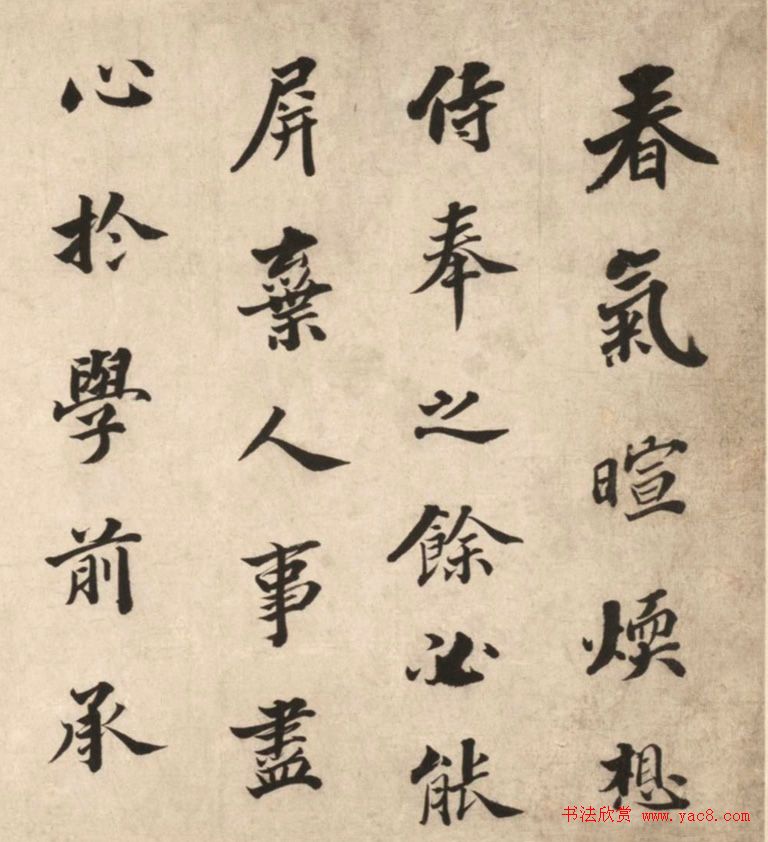 春氣暄煗想
侍奉之餘必能
屏棄人事盡
心於學前承
书法欣赏 www.yac8.com